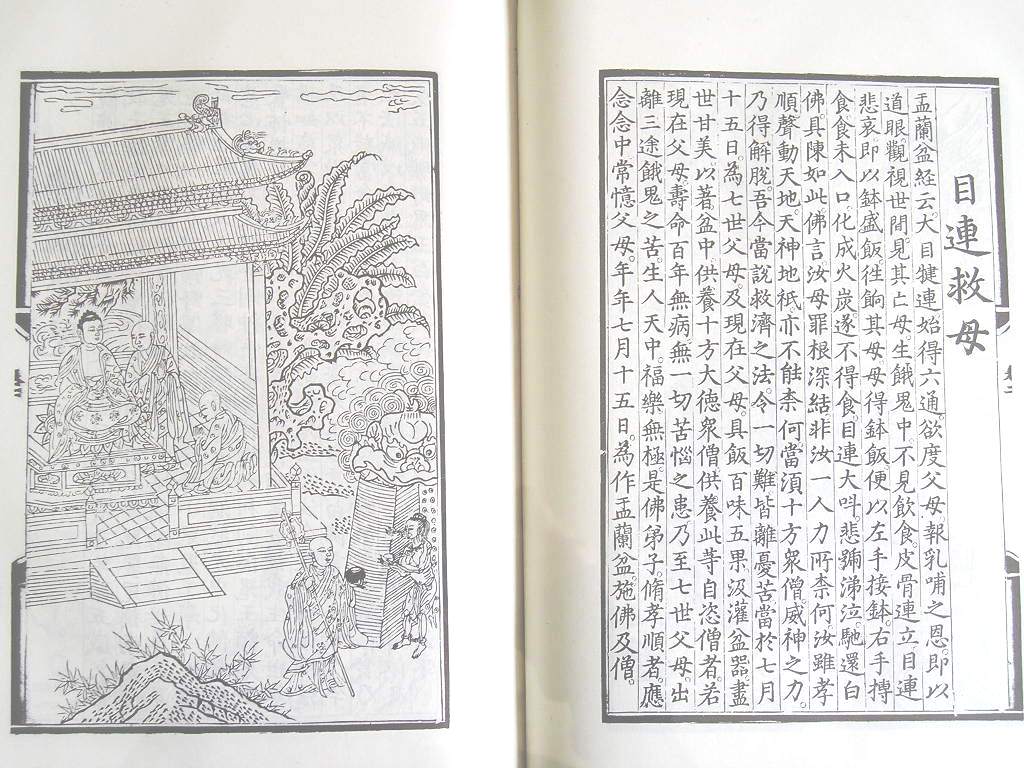 目連救母
盂蘭盆経云。大目犍連始得六通。欲度父母。報乳哺之恩。即以
道眼。觀視世間。見其亡母。生餓鬼中。不見飲食。皮骨連立。目連
悲哀。即以鉢盛飯。徃餉其母。母得鉢飯。便以左手接鉢。右手摶
食。食未入口。化成火炭。遂不得食。目連大叫。悲號涕泣。馳還白
佛。具陳如此。佛言汝母罪根深結。非汝一人力所柰何。汝雖孝
順。聲動天地。天神地祇。亦不能柰何。當須十方衆僧威神之力。
乃得解脫。吾今當說救濟之法。令一切難皆離憂苦。當於七月
十五日。為七世父母。及現在父母。具飯百味五果。汲灌盆器。盡
世甘美。以著盆中。供養十方大德衆僧。供養此等自恣僧者。若
現在父母。壽命百年無病。無一切苦惱之患。乃至七世父母。出
離三途餓鬼之苦。生人天中。福樂無極。是佛弟子。脩孝順者。應
念念中常憶父母。年年七月十五日。為作盂蘭盆。施佛及僧。